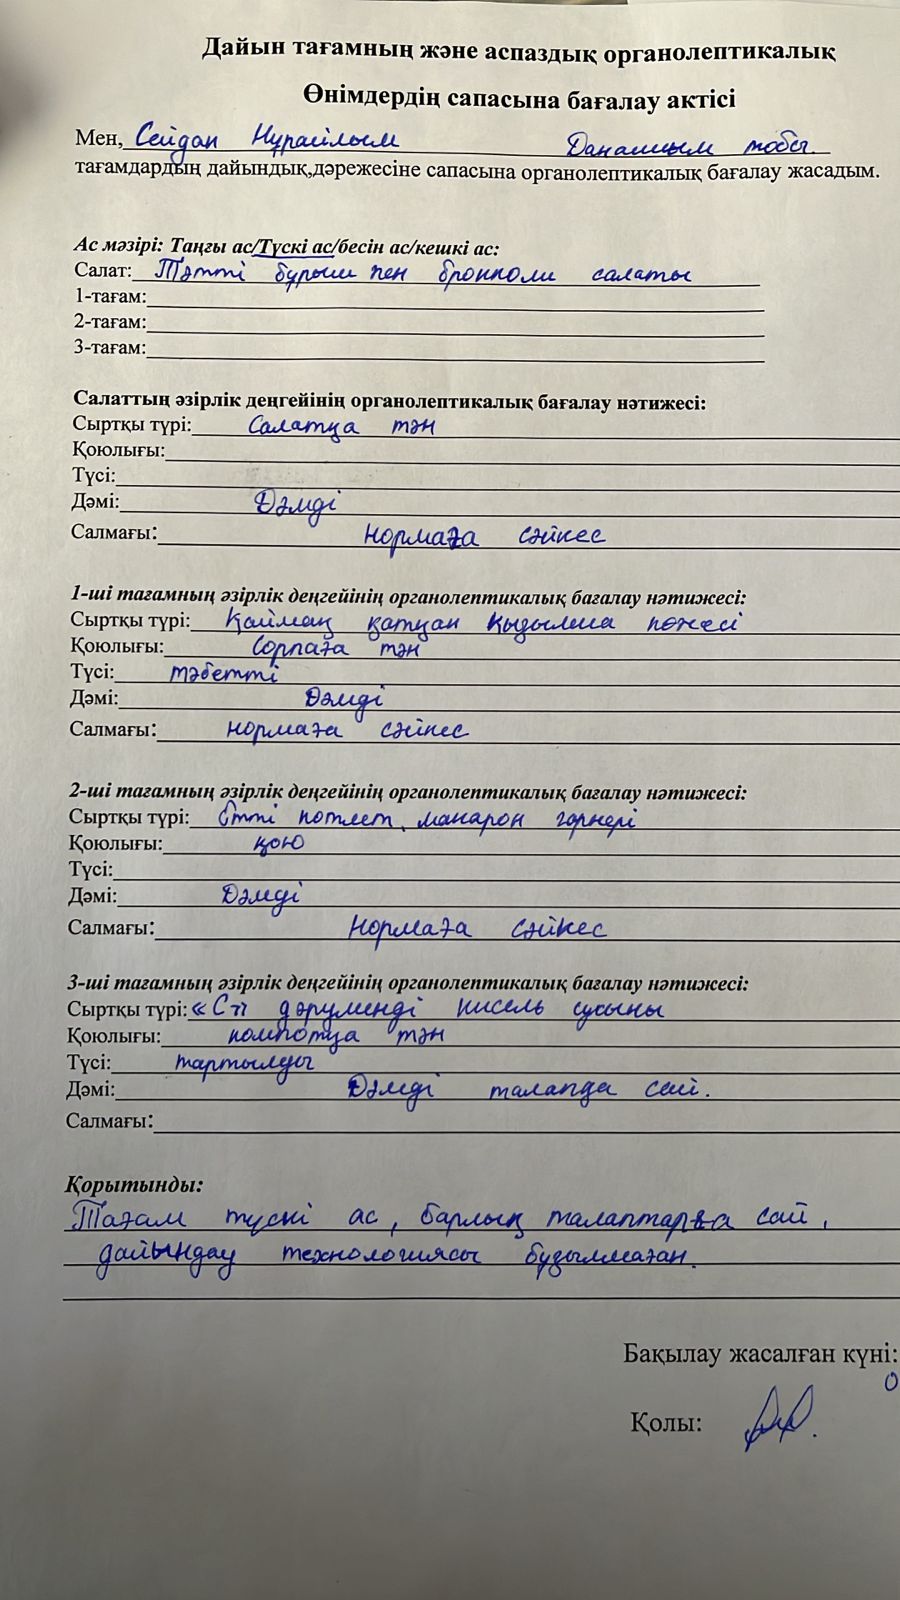 Дайын тағамның және аспаздық органолептикалық
Өнімдердің сапасына бағалау актісі
Мен, Сейдан Нұрайлым Данашым тобы.
тағамдардың дайындық,дәрежесіне сапасына органолептикалық бағалау жасадым.
Ас мәзірі: Таңғы ас/Түскі ас/бесін ас/кешкі ас:
Салат: Тәтті бұрыш пен брокколи салаты
1-тағам:
2-тағам:
3-тағам:
Салаттың әзірлік деңгейінің органолептикалық бағалау нәтижесі:
Сыртқы түрі: Салатқа тән
Қоюлығы:
Түсі:
Дәмі: Дәмді
Салмағы: Нормаға сәйкес
1-ші тағамның әзірлік деңгейінің органолептикалық бағалау нәтижесі:
Сыртқы түрі: Қаймақ қатқан қызылша көжесі
Қоюлығы: Сорпаға тән
Түсі: тәбетті
Дәмі: Дәмді
Салмағы: нормаға сәйкес
2-ші тағамның әзірлік деңгейінің органолептикалық бағалау нәтижесі:
Сыртқы түрі: Етті котлет, макарон гарнері
Қоюлығы: қою
Түсі:
Дәмі: Дәмді
Салмағы: Нормаға сәйкес
3-ші тағамның әзірлік деңгейінің органолептикалық бағалау нәтижесі:
Сыртқы түрі: «С» дәруменді кисель сусыны
Қоюлығы: компотқа тән
Түсі: тартымды
Дәмі: Дәмді талапқа сай.
Салмағы:
Қорытынды:
Тағам түскі ас, барлық талаптарға сай,
дайындау технологиясы бұзылмаған.
Бақылау жасалған күні:
Қолы: